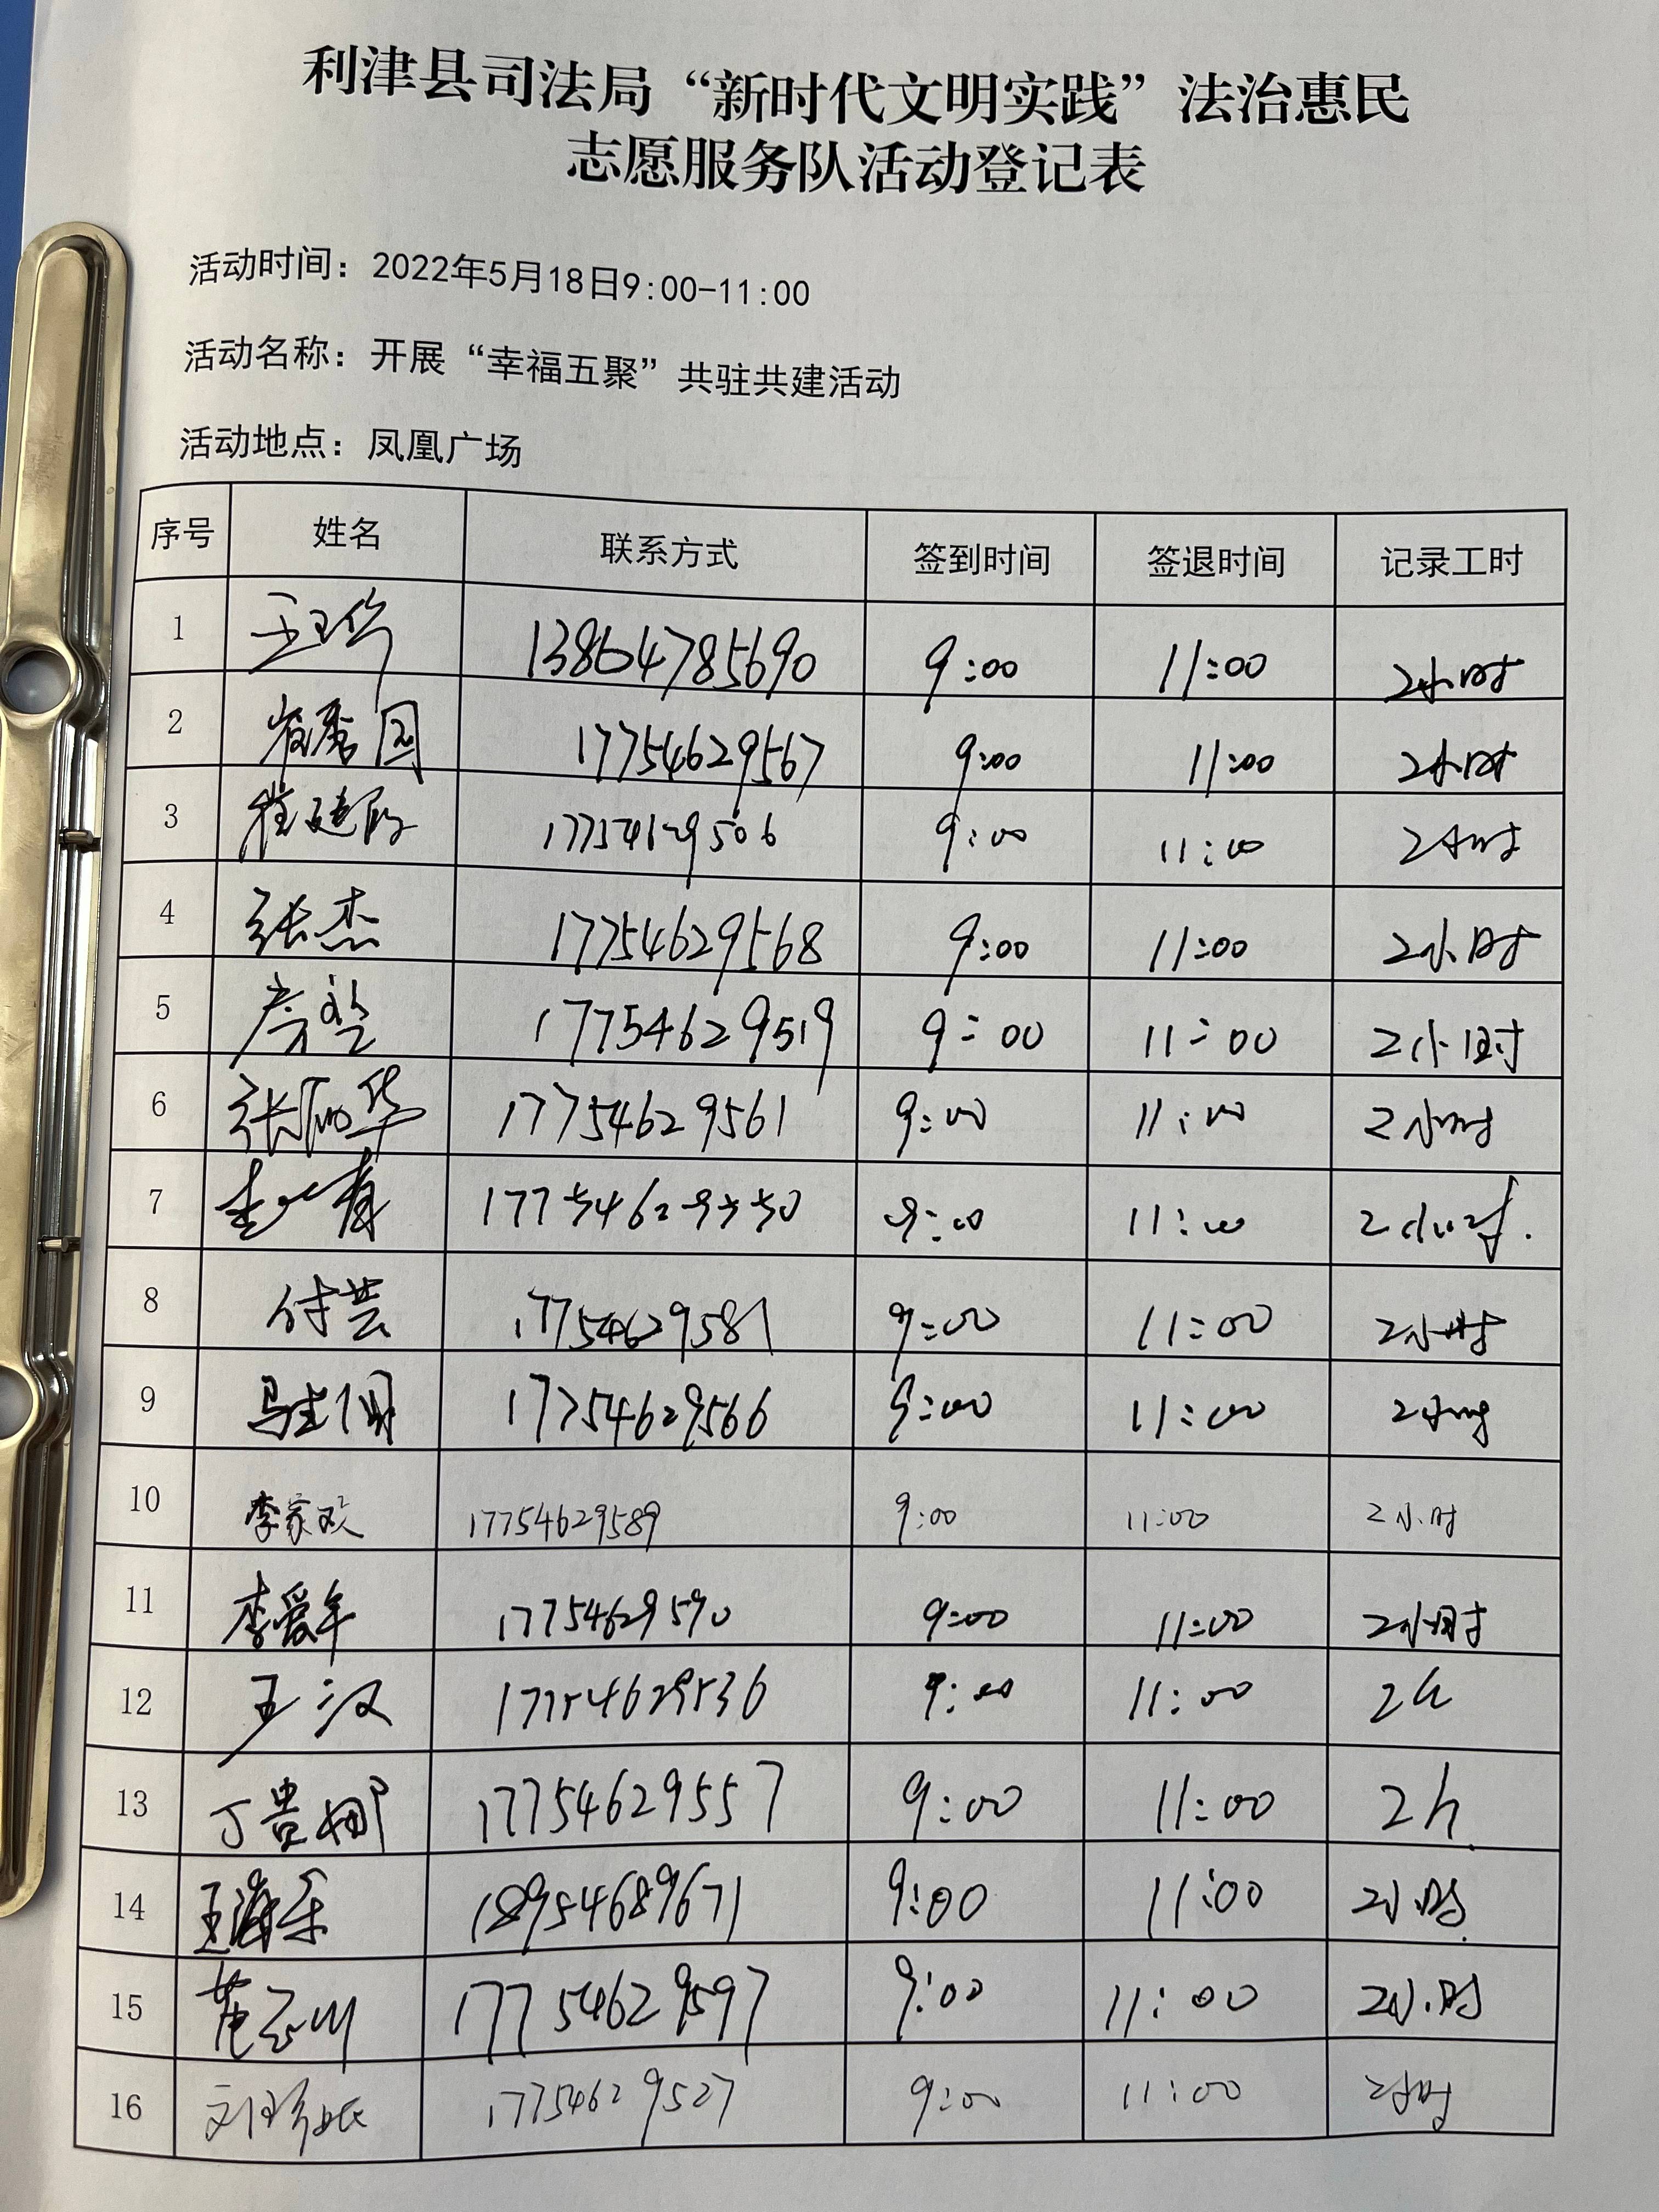 利津县司法局“新时代文明实践”法治惠民
志愿服务队活动登记表
活动时间：2022年5月18日9:00-11:00
活动名称：开展“幸福五聚”共驻共建活动
活动地点：凤凰广场
序号 姓名 联系方式 签到时间 签退时间 记录工时
1 13864785690 9:00 11:00 2小时
2 17754629567 9:00 11:00 2小时
3 9:00 11:00 2小时
4 张杰 17754629568 9:00 11:00 2小时
5 17754629519 9:00 11:00 2小时
6 张丽华 17754629561 9:00 11:00 2小时
7 9:00 11:00 2小时.
8 付芸 17754629581 9:00 11:00 2小时
9 17754629566 9:00 11:00 2小时
10 李家欢 17754629589 9:00 11:00 2小时
11 李爱军 17754629590 9:00 11:00 2小时
12 王汉 17754629536 9:00 11:00 2h
13 丁贵娜 17754629557 9:00 11:00 2h
14 王海乐 18954689671 9:00 11:00 2小时
15 17754629597 9:00 11:00 2小时
16 17754629527 9:00 11:00 2小时